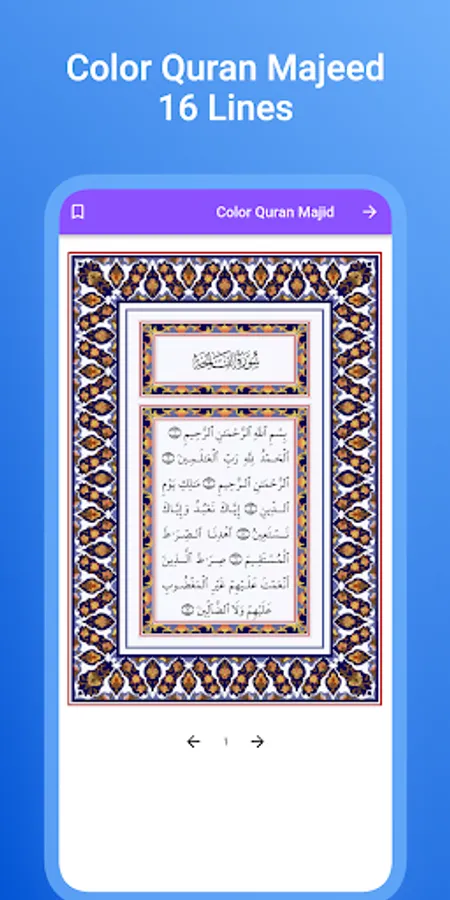 Color Quran Majeed
16 Lines
Color Quran Majid
سُورَةُ الفَاتِحَةِ
بِسْمِ ٱللَّهِ ٱلرَّحْمَـٰنِ ٱلرَّحِيمِ
ٱلْحَمْدُ لِلَّهِ رَبِّ ٱلْعَـٰلَمِينَ
ٱلرَّحْمَـٰنِ ٱلرَّحِيمِ مَـٰلِكِ يَوْمِ
ٱلدِّينِ إِيَّاكَ نَعْبُدُ وَإِيَّاكَ
نَسْتَعِينُ ٱهْدِنَا ٱلصِّرَٰطَ
ٱلْمُسْتَقِيمَ صِرَٰطَ ٱلَّذِينَ
أَنْعَمْتَ عَلَيْهِمْ غَيْرِ ٱلْمَغْضُوبِ
عَلَيْهِمْ وَلَا ٱلضَّآلِّينَ
١